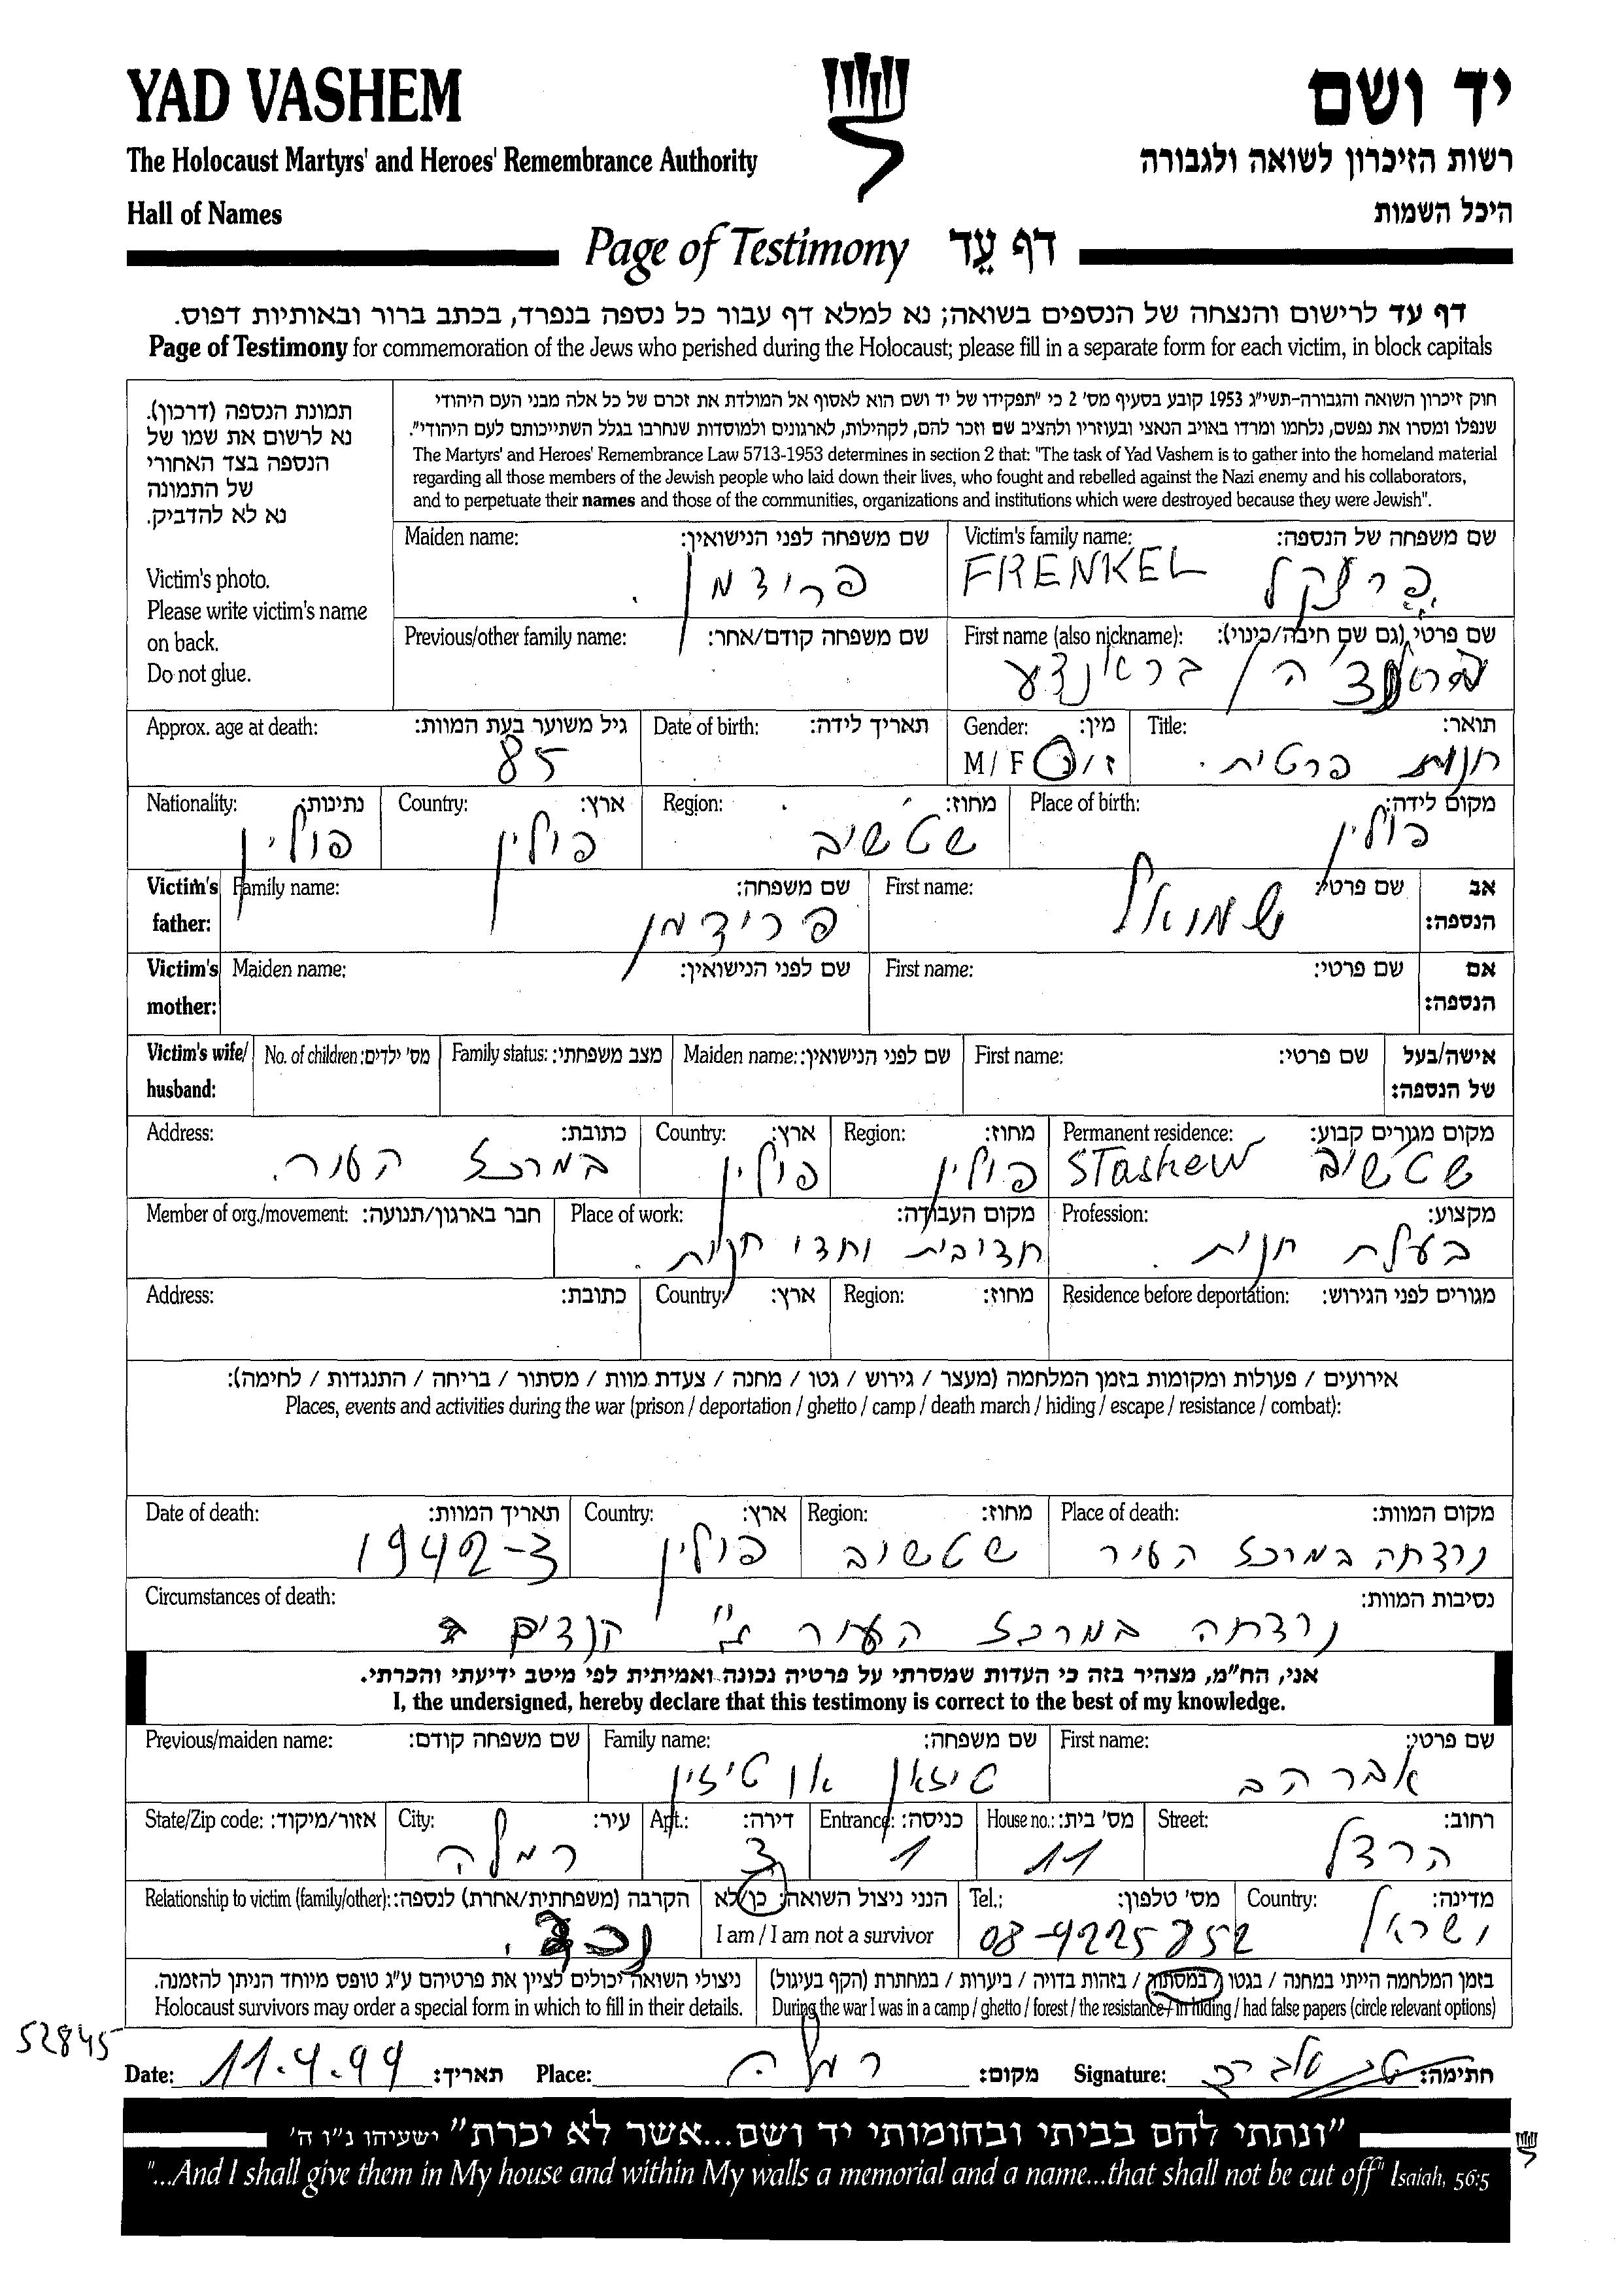 YAD VASHEM
יד ושם
The Holocaust Martyrs' and Heroes' Remembrance Authority
רשות הזיכרון לשואה ולגבורה
Hall of Names
היכל השמות
Page of Testimony דף עֵד
דף עד לרישום והנצחה של הנספים בשואה; נא למלא דף עבור כל נספה בנפרד, בכתב ברור ובאותיות דפוס.
Page of Testimony for commemoration of the Jews who perished during the Holocaust; please fill in a separate form for each victim, in block capitals
תמונת הנספה (דרכון).
נא לרשום את שמו של
הנספה בצד האחורי
של התמונה
נא לא להדביק.
Victim's photo.
Please write victim's name
on back.
Do not glue.
חוק זיכרון השואה והגבורה-תשי"ג 1953 קובע בסעיף מס' 2 כי "תפקידו של יד ושם הוא לאסוף אל המולדת את זכרם של כל אלה מבני העם היהודי
שנפלו ומסרו את נפשם, נלחמו ומרדו באויב הנאצי ובעוזריו ולהציב שם וזכר להם, לקהילות, לארגונים ולמוסדות שנחרבו בגלל השתייכותם לעם היהודי".
The Martyrs' and Heroes' Remembrance Law 5713-1953 determines in section 2 that: "The task of Yad Vashem is to gather into the homeland material
regarding all those members of the Jewish people who laid down their lives, who fought and rebelled against the Nazi enemy and his collaborators,
and to perpetuate their names and those of the communities, organizations and institutions which were destroyed because they were Jewish".
Victim's family name: שם משפחה של הנספה:
FRENKEL פרנקל
Maiden name: שם משפחה לפני הנישואין:
פרידמן
First name (also nickname): שם פרטי (גם שם חיבה/כינוי):
בראנדע
Previous/other family name: שם משפחה קודם/אחר:
Title: תואר:
חנות פרטית.
Gender: מין:
M / F ז/נ
Date of birth: תאריך לידה:
Approx. age at death: גיל משוער בעת המוות:
85
Place of birth: מקום לידה:
פולין
Region: מחוז:
שטשיב
Country: ארץ:
פולין
Nationality: נתינות:
פולין
Victim's father: אב הנספה:
First name: שם פרטי:
שמואל
Family name: שם משפחה:
פרידמן
Victim's mother: אם הנספה:
First name: שם פרטי:
Maiden name: שם לפני הנישואין:
Victim's wife/ husband: אישה/בעל של הנספה:
First name: שם פרטי:
Maiden name: שם לפני הנישואין:
Family status: מצב משפחתי:
No. of children: מס' ילדים:
Permanent residence: מקום מגורים קבוע:
STashew שטשיב
Region: מחוז:
פולין
Country: ארץ:
פולין
Address: כתובת:
במרכז העיר.
Profession: מקצוע:
בעלת חנות.
Place of work: מקום העבודה:
חנות.
Member of org./movement: חבר בארגון/תנועה:
Residence before deportation: מגורים לפני הגירוש:
Region: מחוז:
Country: ארץ:
Address: כתובת:
אירועים / פעולות ומקומות בזמן המלחמה (מעצר / גירוש / גטו / מחנה / צעדת מוות / מסתור / בריחה / התנגדות / לחימה):
Places, events and activities during the war (prison / deportation / ghetto / camp / death march / hiding / escape / resistance / combat):
Place of death: מקום המוות:
נרצחה במרכז העיר
Region: מחוז:
שטשיב
Country: ארץ:
פולין
Date of death: תאריך המוות:
1942-3
Circumstances of death: נסיבות המוות:
נרצחה במרכז העיר ע"י
אני, הח"מ, מצהיר בזה כי העדות שמסרתי על פרטיה נכונה ואמיתית לפי מיטב ידיעתי והכרתי.
I, the undersigned, hereby declare that this testimony is correct to the best of my knowledge.
First name: שם פרטי:
אברהם
Family name: שם משפחה:
טיזאן או טיזין
Previous/maiden name: שם משפחה קודם:
Street: רחוב:
הרצל
House no.: מס' בית:
11
Entrance: כניסה:
1
Apt.: דירה:
3
City: עיר:
רמלה
State/Zip code: אזור/מיקוד:
Country: מדינה:
ישראל
Tel.: מס' טלפון:
08-9225852
הנני ניצול השואה: כן/לא
I am / I am not a survivor
Relationship to victim (family/other): הקרבה (משפחתית/אחרת) לנספה:
נכד.
בזמן המלחמה הייתי במחנה / בגטו / במסתור / בזהות בדויה / ביערות / במחתרת (הקף בעיגול)
During the war I was in a camp / ghetto / forest / the resistance / in hiding / had false papers (circle relevant options)
ניצולי השואה יכולים לציין את פרטיהם ע"ג טופס מיוחד הניתן להזמנה.
Holocaust survivors may order a special form in which to fill in their details.
52845
Date: 11.4.99 תאריך: Place: רמלה מקום: Signature: חתימה:
"ונתתי להם בביתי ובחומותי יד ושם...אשר לא יכרת" ישעיהו נ"ו ה'
"...And I shall give them in My house and within My walls a memorial and a name...that shall not be cut off" Isaiah, 56:5